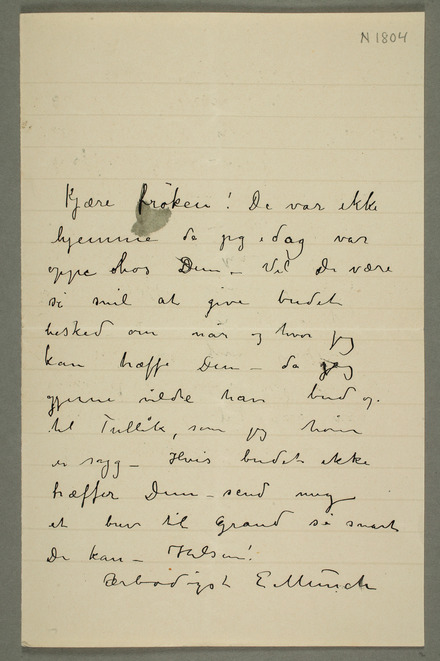 N 1804
Kjære frøken! De var ikke
hjemme da jeg idag var
oppe hos Dem – Vil De være
så snil at give budet
besked om når og hvor jeg
kan træffe Dem – da jeg
gjerne vilde have bud og
til Tullik, som jeg hører
er syg – Hvis budet ikke
træffer Dem – send mig
et brev til Grand så snart
De kan – Hilsen!
Ærbødigst E. Munch